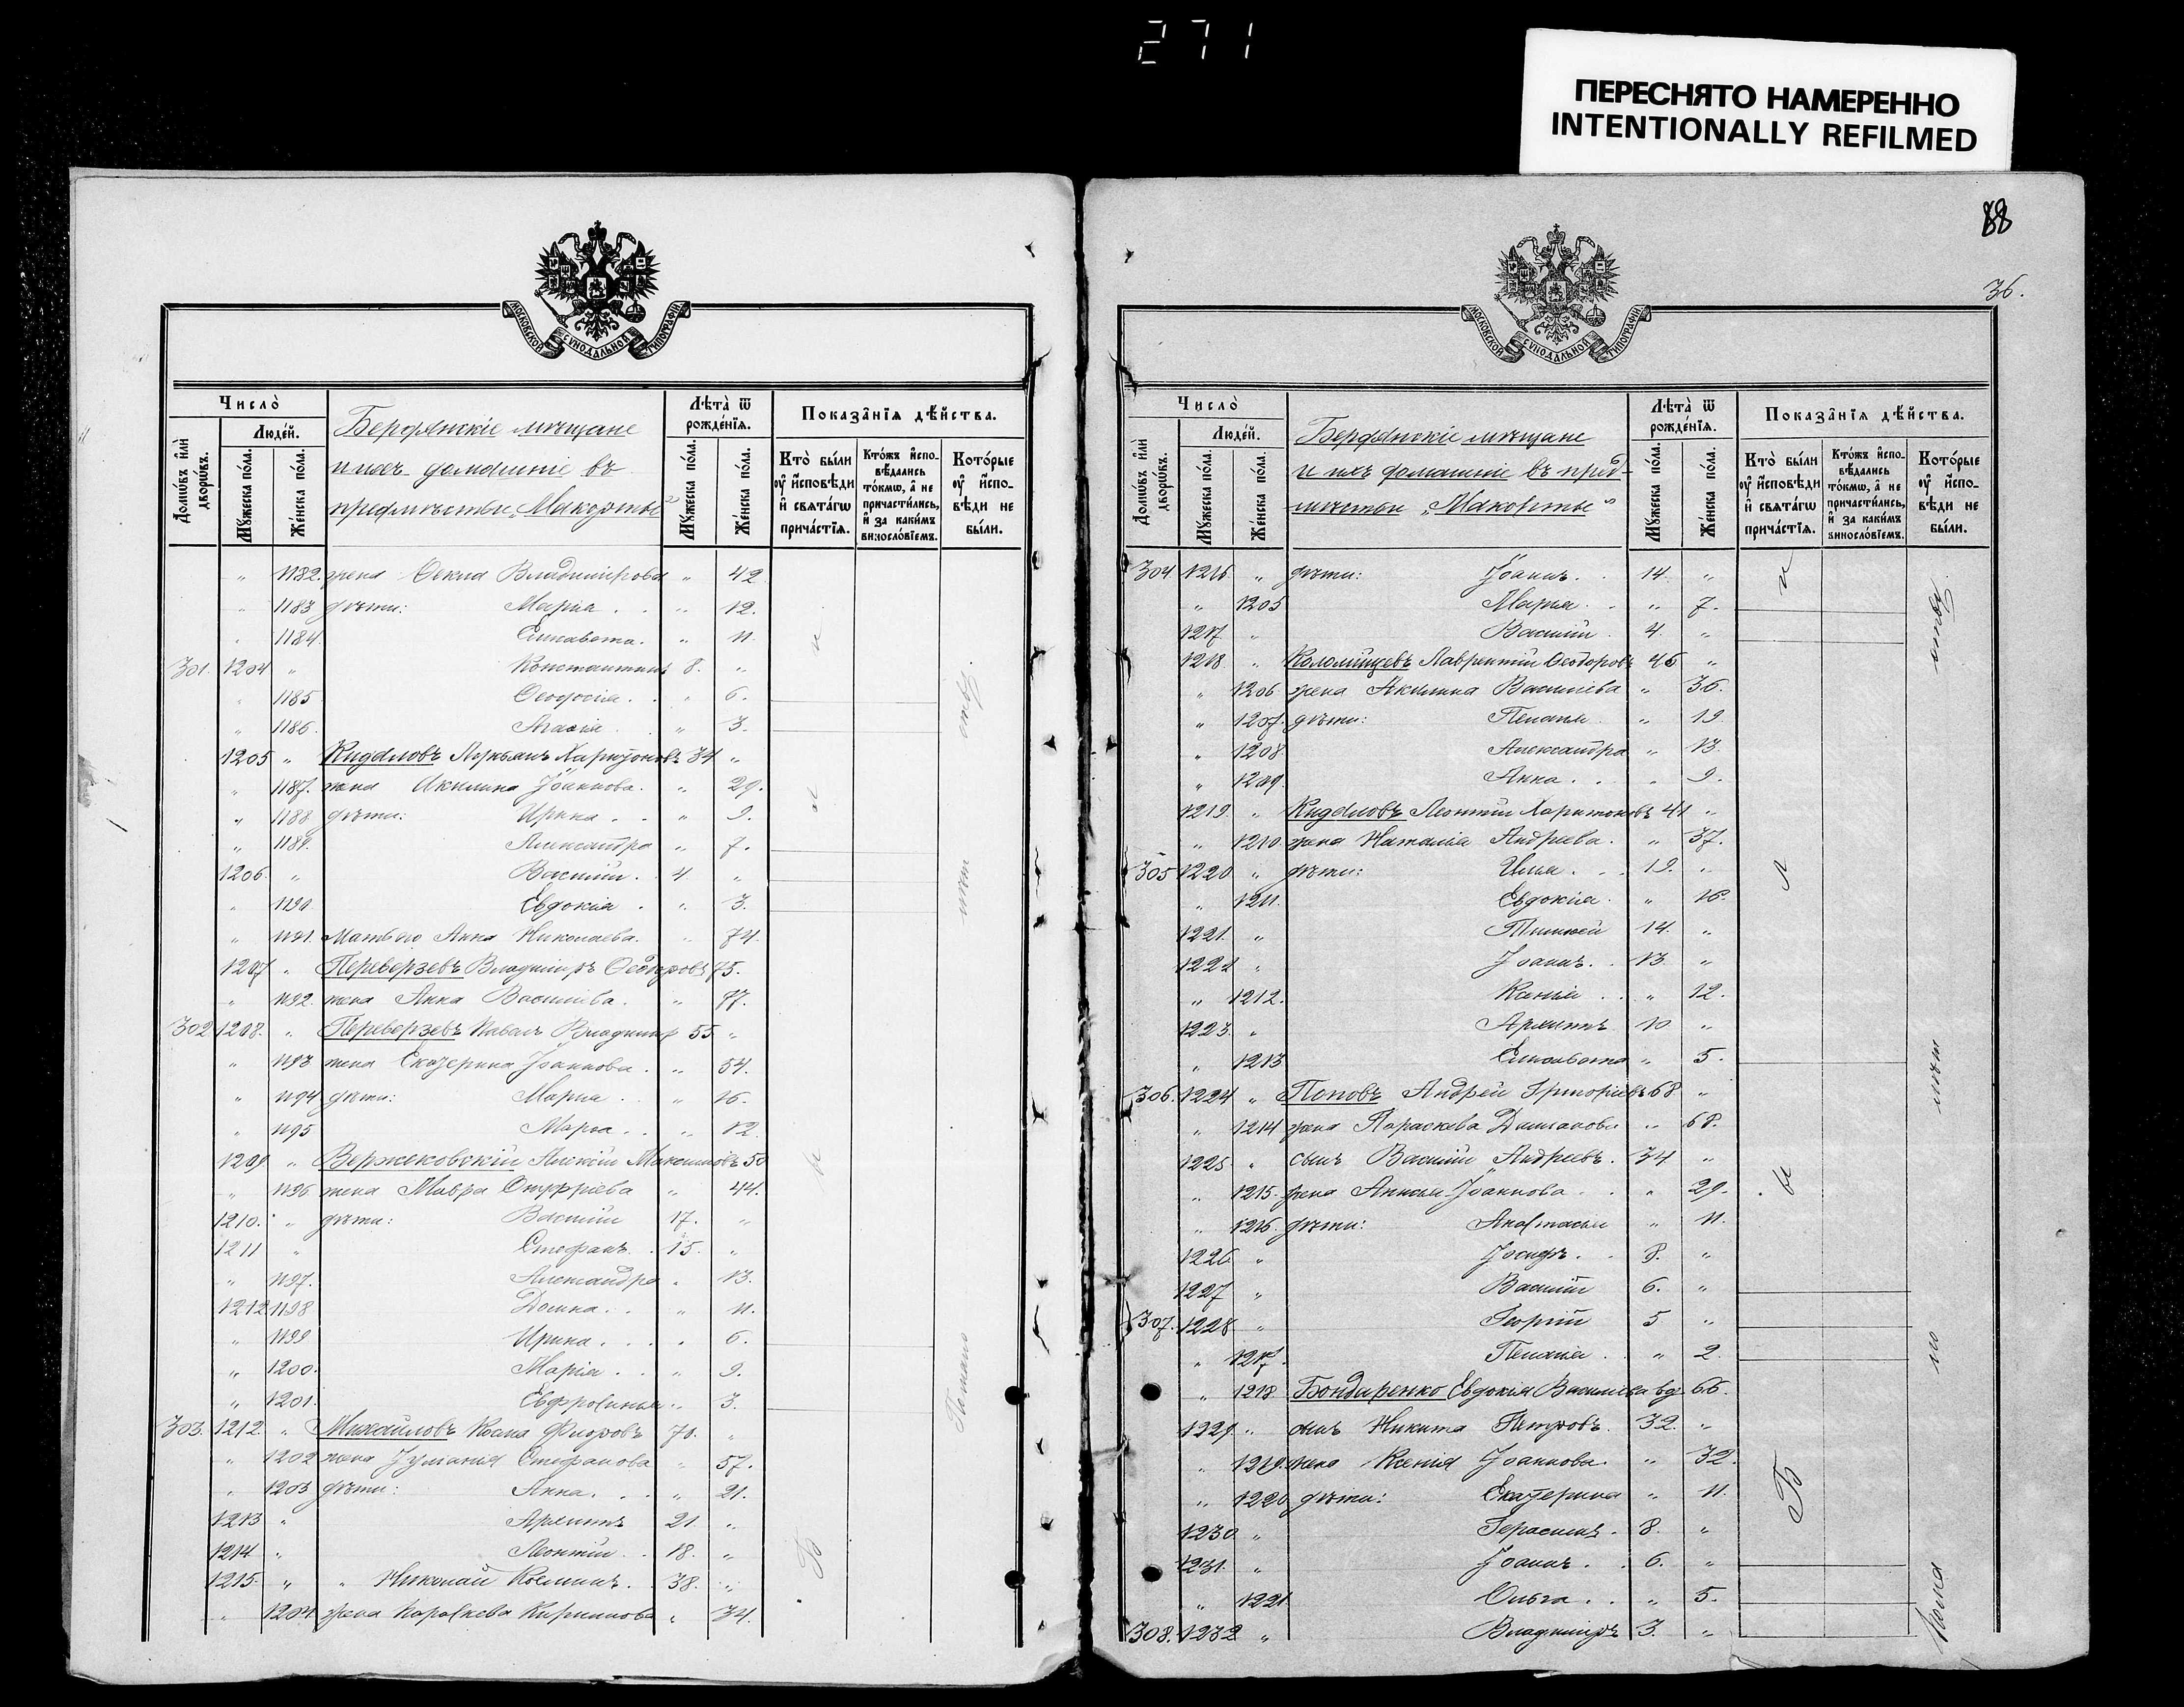 271
ПЕРЕСНЯТО НАМЕРЕННО
INTENTIONALLY REFILMED
МОСКОВСКОЙ СѴНОДАЛЬНОЙ ТИПОГРАФІИ
Число̀
Домѡвъ и҆лѝ дворѡвъ.
Люде́й.
Мꙋ́жеска по́ла.
Же́нска по́ла.
Бердянскіе мѣщане
и ихъ домашніе въ
предмѣстьи „Макорты“
Лѣта̀ ѿ рожде́нїѧ.
Мꙋ́жеска по́ла.
Же́нска по́ла.
Показа̂нїѧ дѣ́йства.
Кто̀ бы́ли оу҆ и҆сповѣди и҆ свѧта́гѡ прича́стїѧ.
Кто́жъ и҆спо-вѣ́дались то́кмѡ, а҆ не причасти́лись, и҆ за каки́мъ винослові́емъ.
Кото́рые оу҆ и҆спо-вѣди не бы́ли.
„ 1182. жена Ѳекла Владимірова „ 42
„ 1183 дѣти: Марія . . „ 12.
„ 1184. Елисавета. „ 11.
301. 1204 „ Константинъ 8. „
„ 1185 Ѳеодосія . . „ 6.
„ 1186. „ 3.
1205 „ Кидаловъ Харитоновъ 34 „
„ 1187. жена Акилина Іоаннова. „ 29.
„ 1188 дѣти: Ирина . . „ 9.
„ 1189. Александра „ 7.
1206. „ Василій . 4. „
„ 1190. Евдокія . „ 3.
„ 1191. Мать его Анна Николаева. „ 74.
1207 „ Переверзевъ Владиміръ Ѳеодоровъ 75.
„ 1192. жена Анна Васильева. „ 77.
302 1208. „ Переверзевъ Павелъ Владимір 55 „
„ 1193 жена Екатерина Іоаннова . „ 54.
„ 1194 дѣти: Марія . „ 16.
„ 1195 . . „ 12.
1209 „ Вержековскій Алексій Максимовъ 50
„ 1196 жена Мавра Онуфріева „ 44.
1210. „ дѣти: Василій 17. „
1211 „ Стефанъ . 15. „
„ 1197. Александра „ 13.
1212 1198 Домна . . „ 11.
„ 1199 Ирина . . . „ 6.
„ 1200. Марія . . „ 9.
„ 1201. Евфросинья „ 3.
303. 1212. „ Михайловъ Косма 70. „
„ 1202 жена Іуліанія Стефанова „ 57.
„ 1203 дѣти: Анна . . „ 21.
1213 „ Архипъ 21 „
1214 „ Леонтій . . 18. „
1215. „ „ Николай Косминъ . 38. „
„ 1204 жена Параскева Кириллова „ 34.
88
36.
МОСКОВСКОЙ СѴНОДАЛЬНОЙ ТИПОГРАФІИ
Число̀
Домѡвъ и҆лѝ дворѡвъ.
Люде́й.
Мꙋ́жеска по́ла.
Же́нска по́ла.
Бердянскіе мѣщане
и ихъ домашніе въ пред-
мѣстьи „Макорты“
Лѣта̀ ѿ рожде́нїѧ.
Мꙋ́жеска по́ла.
Же́нска по́ла.
Показа̂нїѧ дѣ́йства.
Кто̀ бы́ли оу҆ и҆сповѣди и҆ свѧта́гѡ прича́стїѧ.
Кто́жъ и҆спо-вѣ́дались то́кмѡ, а҆ не причасти́лись, и҆ за каки́мъ винослові́емъ.
Кото́рые оу҆ и҆спо-вѣди не бы́ли.
304 1216 „ дѣти: Іоаннъ . . 14. „
„ 1205 Марья . . „ 7.
1217 „ Василій . 4. „
1218 „ Коломійцевъ Лаврентій Ѳеодоровъ 46 „
„ 1206 жена Акилина Васильева „ 36.
„ 1207. дѣти: Пелагія . „ 19.
„ 1208 Александра „ 13.
„ 1209 Анна . . „ 9.
1219. „ Кидаловъ Леонтій Харитоновъ 41 „
„ 1210 жена Наталія Андреева. „ 37.
305 1220 „ дѣти: Илья . . . 19. „
„ 1211. Евдокія . „ 16.
1221. „ 14. „
1222 „ Іоаннъ . . 13. „
„ 1212. Ксенія . . „ 12.
1223. „ Архипъ 10 „
„ 1213 Елисавета „ 5.
306. 1224 „ Поповъ Андрей Григоріевъ 68 „
„ 1214 жена Параскева „ 68.
1225 „ сынъ Василій Андреевъ . 34 „
„ 1215. жена Анисья Іоаннова . . „ 29.
„ 1216. дѣти: Анастасія „ 11.
1226. „ Іосифъ . . 8. „
1227 „ Василій 6. „
307. 1228 „ Георгій 5 „
„ 1217. Пелагія . „ 2.
„ 1218 Бондаренко Евдокія Васильева вд. 66.
1229 „ сынъ Никита Петровъ. 32. „
„ 1219. жена Ксенія Іоаннова. „ 32.
„ 1220 дѣти: Екатерина „ 11.
1230 „ Герасимъ . 8. „
1231. „ Іоаннъ . . 6. „
„ 1221 Ольга . . „ 5.
308. 1232 „ Владиміръ 3. „